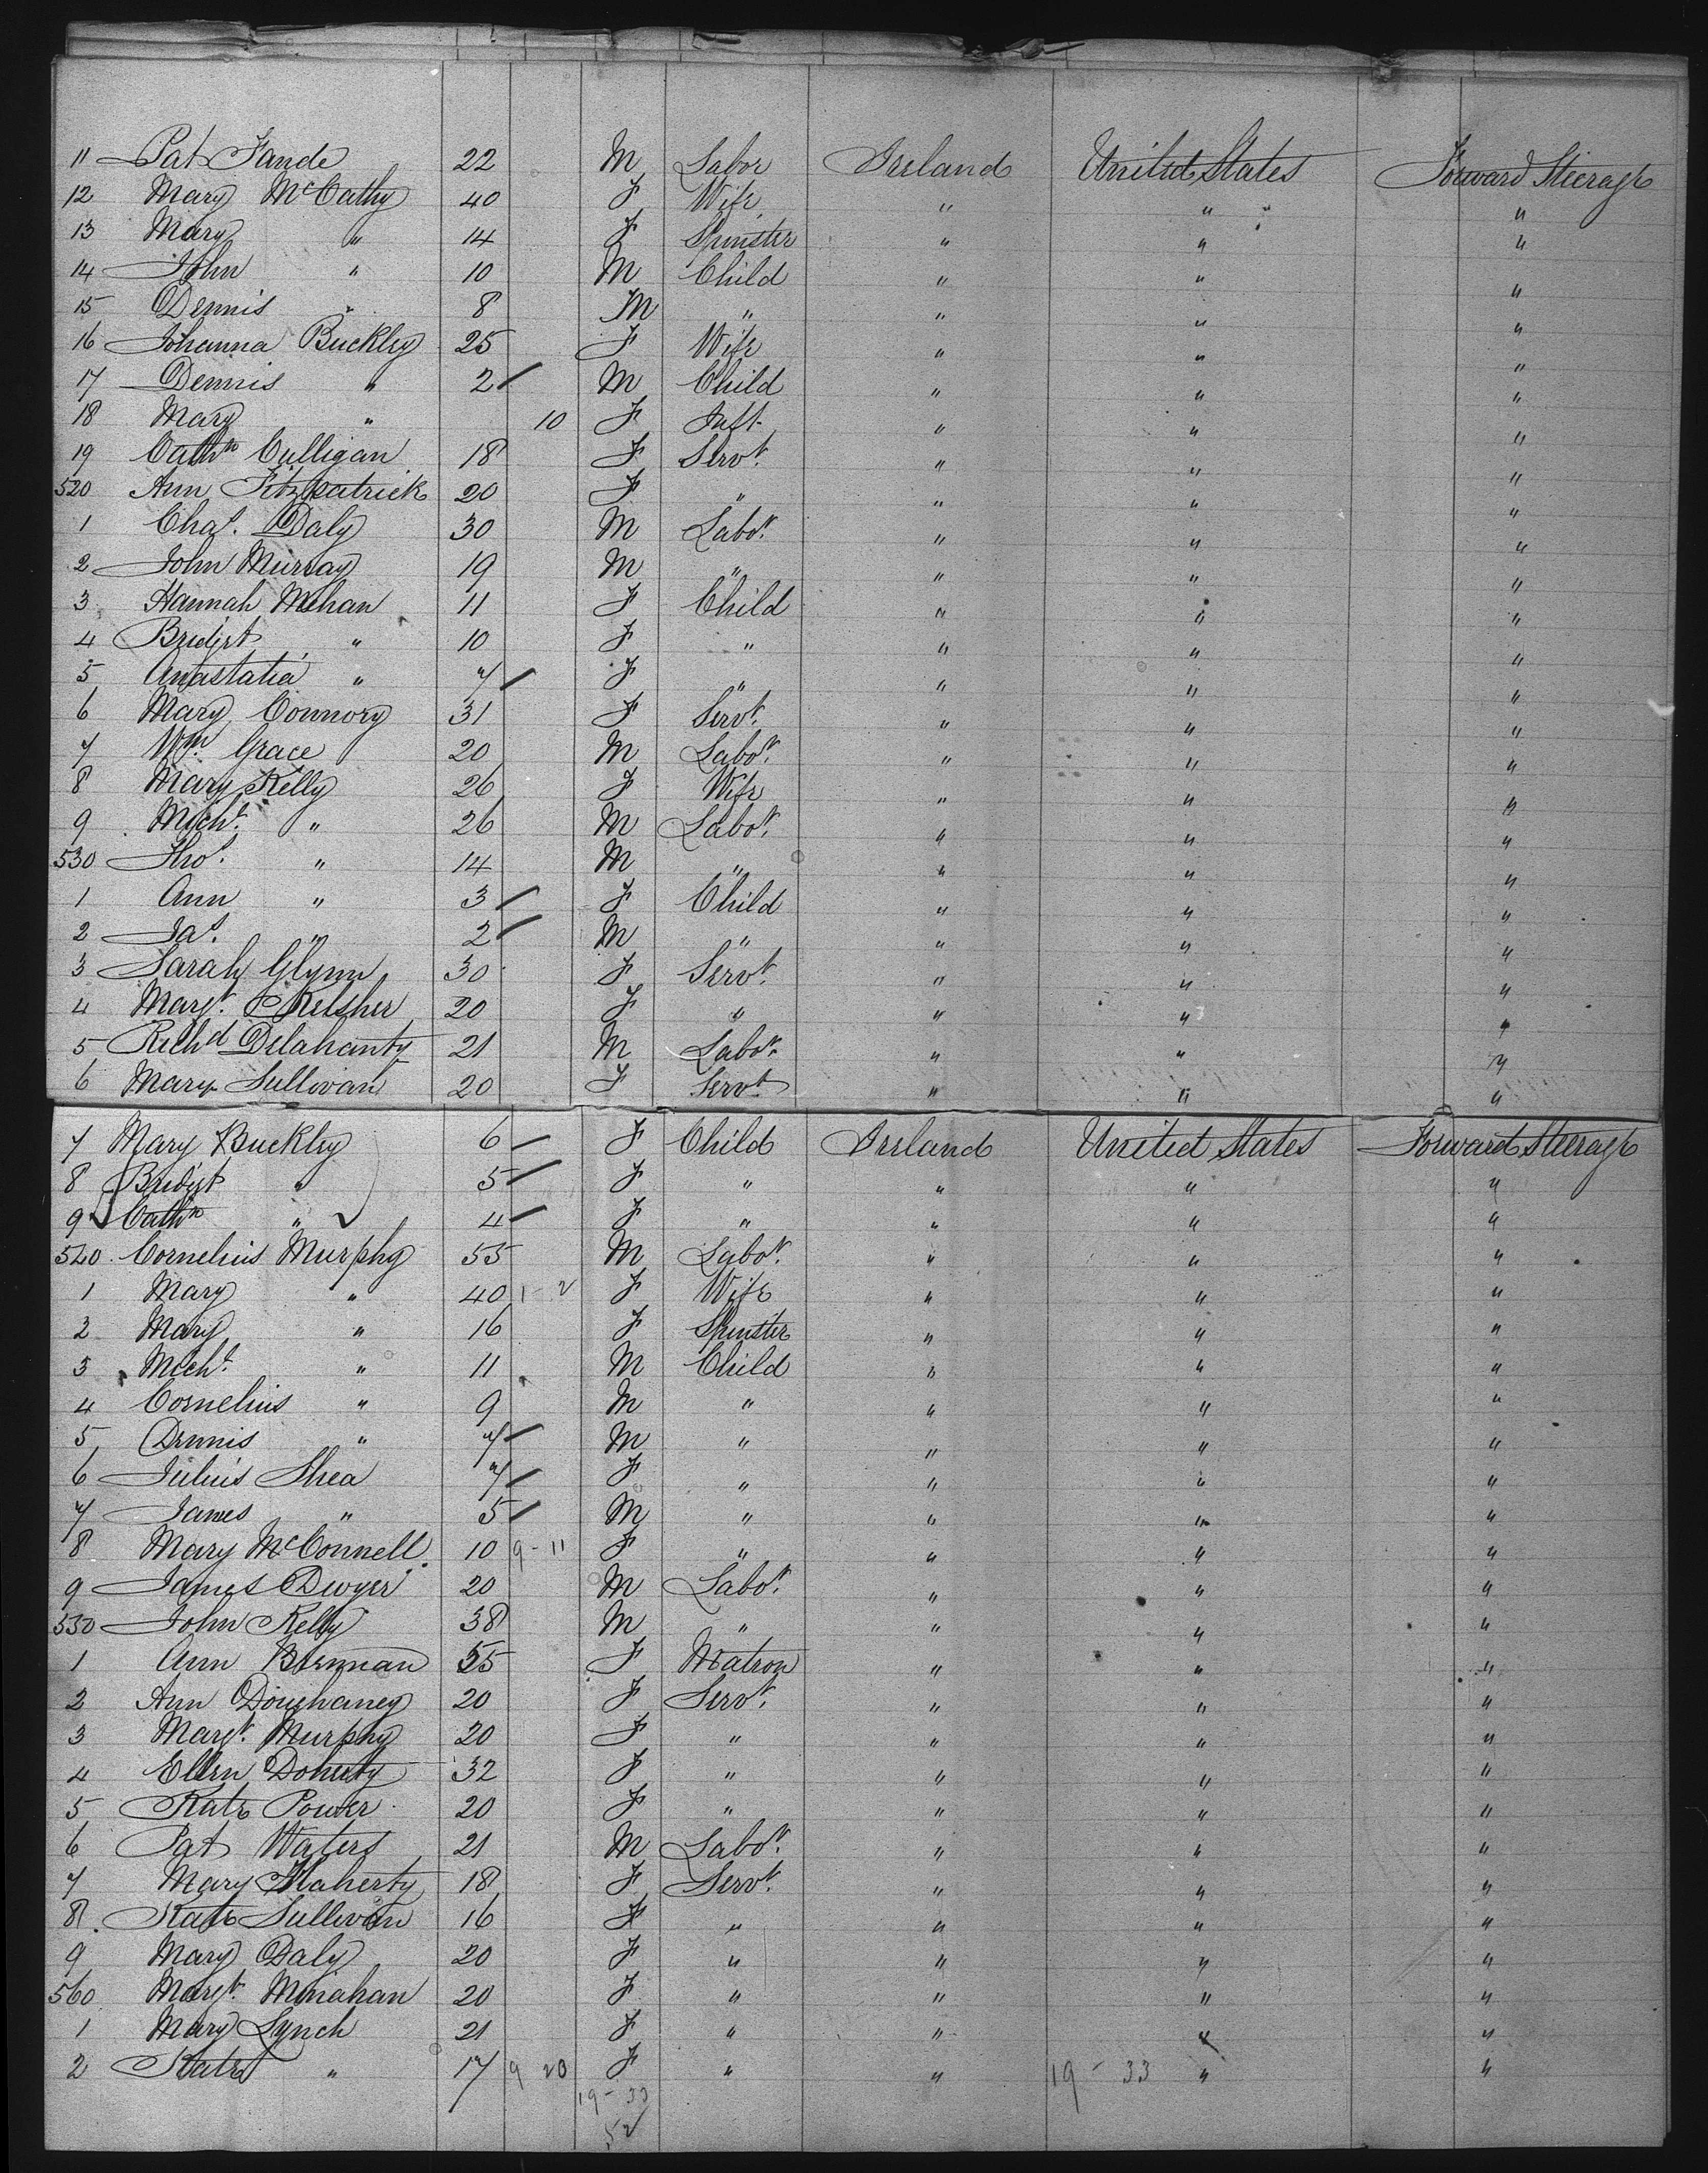 11 Pat Fande 22 M Labor Ireland United States Forward Steerage
12 Mary McCathy 40 F Wife " " "
13 Mary " 14 F Spinster " " "
14 John " 10 M Child " " "
15 Dennis " 8 M " " " "
16 Johanna Buckley 25 F Wife " " "
17 Dennis " 2 M Child " " "
18 Mary " 10 F Inft " " "
19 Cathn Culligan 18 F Servt. " " "
520 Ann Fitzpatrick 20 F " " " "
1 Chas. Daly 30 M Labor. " " "
2 John Murray 19 M " " " "
3 Hannah Mehan 11 F Child " " "
4 Bridget " 10 F " " " "
5 Anastatia " 7 F " " " "
6 Mary Connory 31 F Servt. " " "
7 Wm Grace 20 M Labor. " " "
8 Mary Kelly 26 F Wife " " "
9 Michl. " 26 M Labor. " " "
530 Thos. " 14 M " " " "
1 Ann " 3 F Child " " "
2 Jas. " 2 M " " " "
3 Sarah Glynn 30 F Servt. " " "
4 Margt. Kelsher 20 F " " " "
5 Richd Delahanty 21 M Labor. " " "
6 Mary Sullivan 20 F Servt. " " "
7 Mary Buckley 6 F Child Ireland United States Forward Steerage
8 Bridget " 5 F " " " "
9 Cathn " 4 F " " " "
540 Cornelius Murphy 55 M Labor. " " "
1 Mary " 40 1 - 2 F Wife " " "
2 Mary " 16 F Spinster " " "
3 Michl. " 11 M Child " " "
4 Cornelius " 9 M " " " "
5 Dennis " 7 M " " " "
6 Julius Shea 7 F " " " "
7 James " 5 M " " " "
8 Mary McConnell 10 9 - 11 F " " " "
9 James Dwyer 20 M Labor. " " "
550 John Kelly 38 M " " " "
1 Ann Brennan 55 F Matron " " "
2 Ann Doughaney 20 F Servt. " " "
3 Margt. Murphy 20 F " " " "
4 Ellen Doherty 32 F " " " "
5 Kate Power 20 F " " " "
6 Pat Waters 21 M Labor. " " "
7 Mary Flaherty 18 F Servt. " " "
8 Kate Sullivan 16 F " " " "
9 Mary Daly 20 F " " " "
560 Margt. Minahan 20 F " " " "
1 Mary Lynch 21 F " " " "
2 Kate " 17 9 20 F " " 19 - 33 " "
19 - 33
52